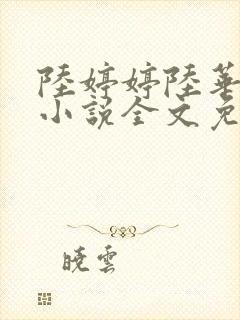 陸婷婷陸華
小說全文免
曉雲